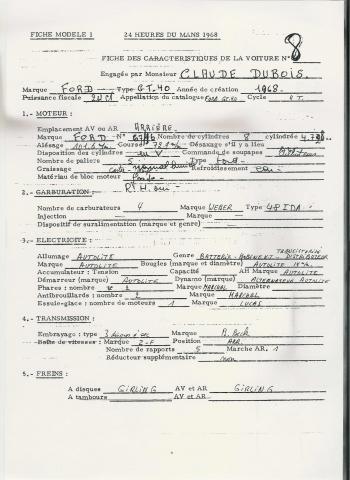 FICHE MODELE 1 24 HEURES DU MANS 1968
FICHE DES CARACTERISTIQUES DE LA VOITURE N° 8
Engagée par Monsieur CLAUDE DUBOIS.
Marque FORD Type GT.40 Année de création 1968.
Puissance fiscale Appellation du catalogue FORD GT.40 Cycle 4T.
1.- MOTEUR :
Emplacement AV ou AR ARRIERE.
Marque FORD N° Nombre de cylindres 8 cylindrée
Alésage Course Désaxage s'il y a lieu
Disposition des cylindres en V Commande de soupapes
Nombre de paliers 5 Type
Graissage Refroidissement eau
Matériau de bloc moteur
2.- CARBURATION :
Nombre de carburateurs 4 Marque WEBER Type 48 IDA
Injection Marque
Dispositif de suralimentation (marque et genre)
3.- ELECTRICITE :
Allumage AUTOLITE Genre BATTERIE
Marque AUTOLITE Bougies (marque et diamètre) AUTOLITE
Accumulateur : Tension Capacité AH Marque AUTOLITE
Démarreur (marque) AUTOLITE Dynamo (marque) ALTERNATEUR AUTOLITE
Phares : nombre Marque MARCHAL Diamètre
Antibrouillards : nombre Marque MARCHAL
Essuie-glace : nombre de moteurs 1 Marque LUCAS
4.- TRANSMISSION :
Embrayage : type Marque
Boîte de vitesses : Marque Z-F Position ARR.
Nombre de rapports 5 Marche AR. 1
Réducteur supplémentaire non
5.- FREINS :
A disques GIRLING AV et AR GIRLING
A tambours AV et AR